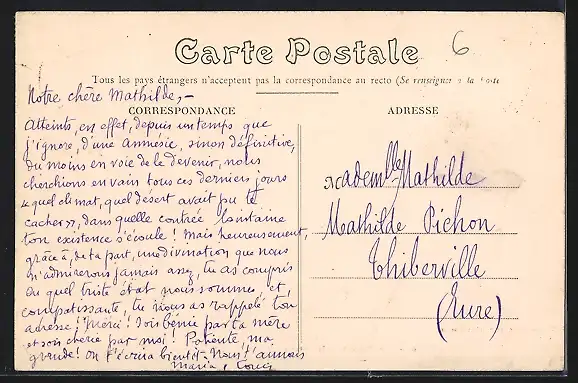 6
Carte Postale
Tous les pays étrangers n'acceptent pas la correspondance au recto (Se renseigner à la Poste
Notre chère Mathilde,-
CORRESPONDANCE
Atteints, en effet, depuis un temps que
j'ignore, d'une amnésie, sinon définitive,
du moins en voie de le devenir, nous
cherchions en vain tous ces derniers jours
« quel climat, quel désert avait pu te
cacher », dans quelle contrée lointaine
ton existence s'écoule ! Mais heureusement,
grâce à, de ta part, une divination que nous
n'admirerons jamais assez, tu as compris
en quel triste état nous sommes, et,
compatissante, tu nous as rappelé ton
adresse ! Merci ! Sois bénie par ta mère
et sois chérie par moi ! Patiente, ma
grande ! On t'écrira bientôt. Nous t'aimons
Maria,
ADRESSE
Mathilde
Mathilde Pichon
Thiberville
(Eure)